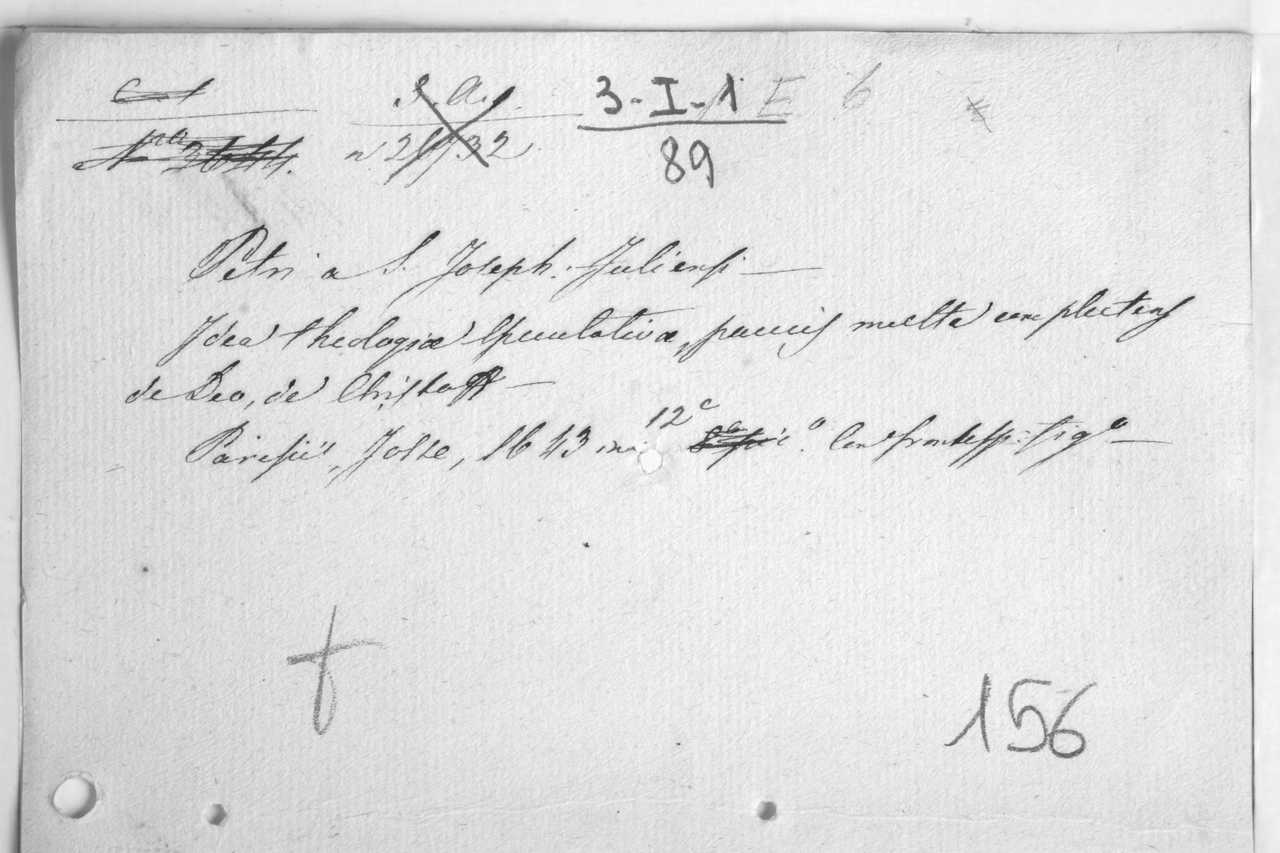 S. A. J. 3-I-1 E 6
89
Petri a S. Joseph. Juliensi —
Idea theologiæ Speculativæ, paucis multa complectens
de Deo, de Christo &c —
Parisiis, Josse, 1643 in 12º Con frontesp: figº —
156